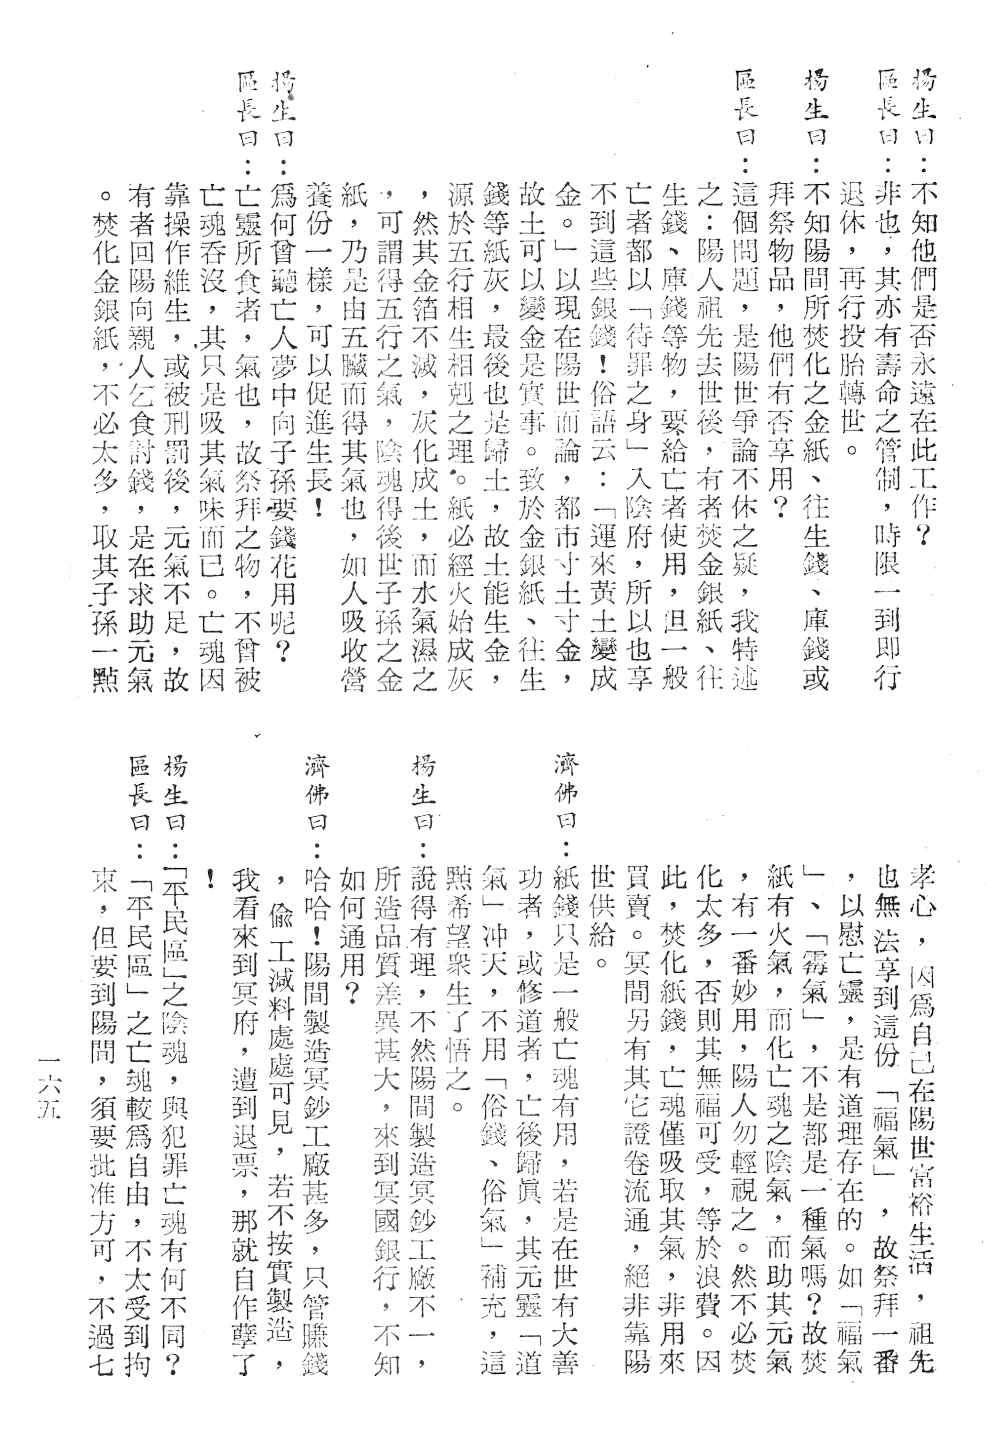 楊生曰：不知他們是否永遠在此工作？
區長曰：非也，其亦有壽命之管制，時限一到即行
退休，再行投胎轉世。
楊生曰：不知陽間所焚化之金紙、往生錢、庫錢或
拜祭物品，他們有否享用？
區長曰：這個問題，是陽世爭論不休之疑，我特述
之：陽人祖先去世後，有者焚金銀紙、往
生錢、庫錢等物，要給亡者使用，但一般
亡者都以「待罪之身」入陰府，所以也享
不到這些銀錢！俗語云：「運來黃土變成
金。」以現在陽世而論，都市寸土寸金，
故土可以變金是實事。致於金銀紙、往生
錢等紙灰，最後也是歸土，故土能生金，
源於五行相生相剋之理。紙必經火始成灰
，然其金箔不滅，灰化成土，而水氣濕之
，可謂得五行之氣，陰魂得後世子孫之金
紙，乃是由五臟而得其氣也，如人吸收營
養份一樣，可以促進生長！
楊生曰：爲何曾聽亡人夢中向子孫要錢花用呢？
區長曰：亡靈所食者，氣也，故祭拜之物，不曾被
亡魂吞沒，其只是吸其氣味而已。亡魂因
靠操作維生，或被刑罰後，元氣不足，故
有者回陽向親人乞食討錢，是在求助元氣
。焚化金銀紙，不必太多，取其子孫一點
孝心，因爲自己在陽世富裕生活，祖先
也無法享到這份「福氣」，故祭拜一番
，以慰亡靈，是有道理存在的。如「福氣
」、「霉氣」，不是都是一種氣嗎？故焚
紙有火氣，而化亡魂之陰氣，而助其元氣
，有一番妙用，陽人勿輕視之。然不必焚
化太多，否則其無福可受，等於浪費。因
此，焚化紙錢，亡魂僅吸取其氣，非用來
買賣。冥間另有其它證卷流通，絕非靠陽
世供給。
濟佛曰：紙錢只是一般亡魂有用，若是在世有大善
功者，或修道者，亡後歸眞，其元靈「道
氣」冲天，不用「俗錢、俗氣」補充，這
點希望衆生了悟之。
楊生曰：說得有理，不然陽間製造冥鈔工廠不一，
所造品質差異甚大，來到冥國銀行，不知
如何通用？
濟佛曰：哈哈！陽間製造冥鈔工廠甚多，只管賺錢
，偷工減料處處可見，若不按實製造，
我看來到冥府，遭到退票，那就自作孽了
！
楊生曰：「平民區」之陰魂，與犯罪亡魂有何不同？
區長曰：「平民區」之亡魂較爲自由，不太受到拘
束，但要到陽間，須要批准方可，不過七
一六五